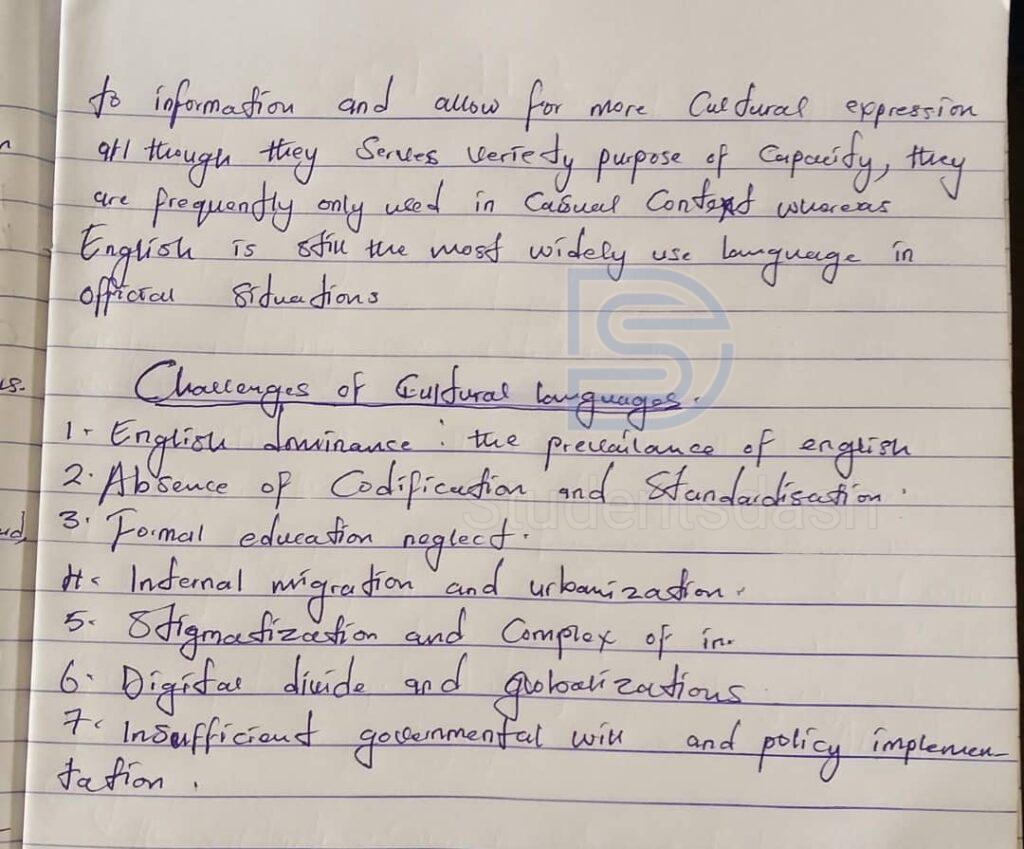 to information and allow for more Cultural expression
allthough they Serves veriety purpose of Capacity, they
are frequently only used in Casual Context whereas
English is still the most widely use language in
official Situations
Challenges of Cultural languages.
1. English dominance : the prevailance of english
2. Absence of Codification and Standardisation.
3. Formal education neglect.
4. Internal migration and urbanization.
5. Stigmatization and Complex of in.
6. Digital divide and globalizations
7. Insufficient governmental will and policy implemen-
tation.
Studentsdash